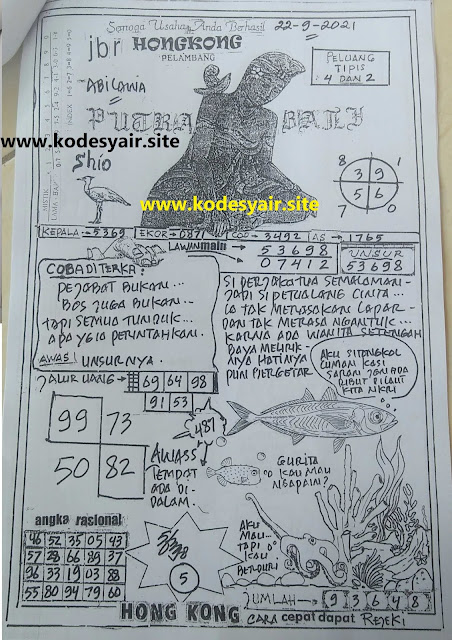 Semoga Usaha Anda Berhasil 22-9-2021
jbr HONGKONG
PELAMBANG
PELUANG
TIPIS
4 DAN 2
ABILAWA
PUTRA BALI
www.kodesyair.site
Shio
www.kodesyair.site
8 1
3 9
5 6
7 0
KEPALA → 5369 EKOR → 0871 COP → 3492 AS → 1765
LAWAN main → 53698
07412
UNSUR
53698
COBA DITERKA:
PEJABAT BUKAN...
BOS JUGA BUKAN...
TAPI SEMUA TUNDUK...
APA YG IA PERINTAHKAN.
AWAS UNSURNYA.
SI PERJAKA TUA SEMALAMAN
JADI SI PETUALANG CINTA...
IA TAK MERASAKAN LAPAR
DAN TAK MERASA NGANTUK...
KARNA ADA WANITA SETENGAH
BAYA MELIRIK
NYA HATINYA
PUN BERGETAR
AKU SITONGKOL
CUMAN KASI
SARAN JGN ADA
RIBUT DI LAUT
KITA NKRI
JALUR UANG → 69 64 98
91 53
487
99 73
50 82
AWASS
TEMPAT
ADA DI
DALAM.
GURITA
KAU MAU
NGAPAIN?
angka rasional
46 52 35 05 43
57 28 66 89 37
96 33 19 03 88
55 80 94 79 60
5
AKU
MAU
TAPI
KAU
BERDURI
JUMLAH → 9 3 6 4 8
HONG KONG CARA cepat dapat REJEKI